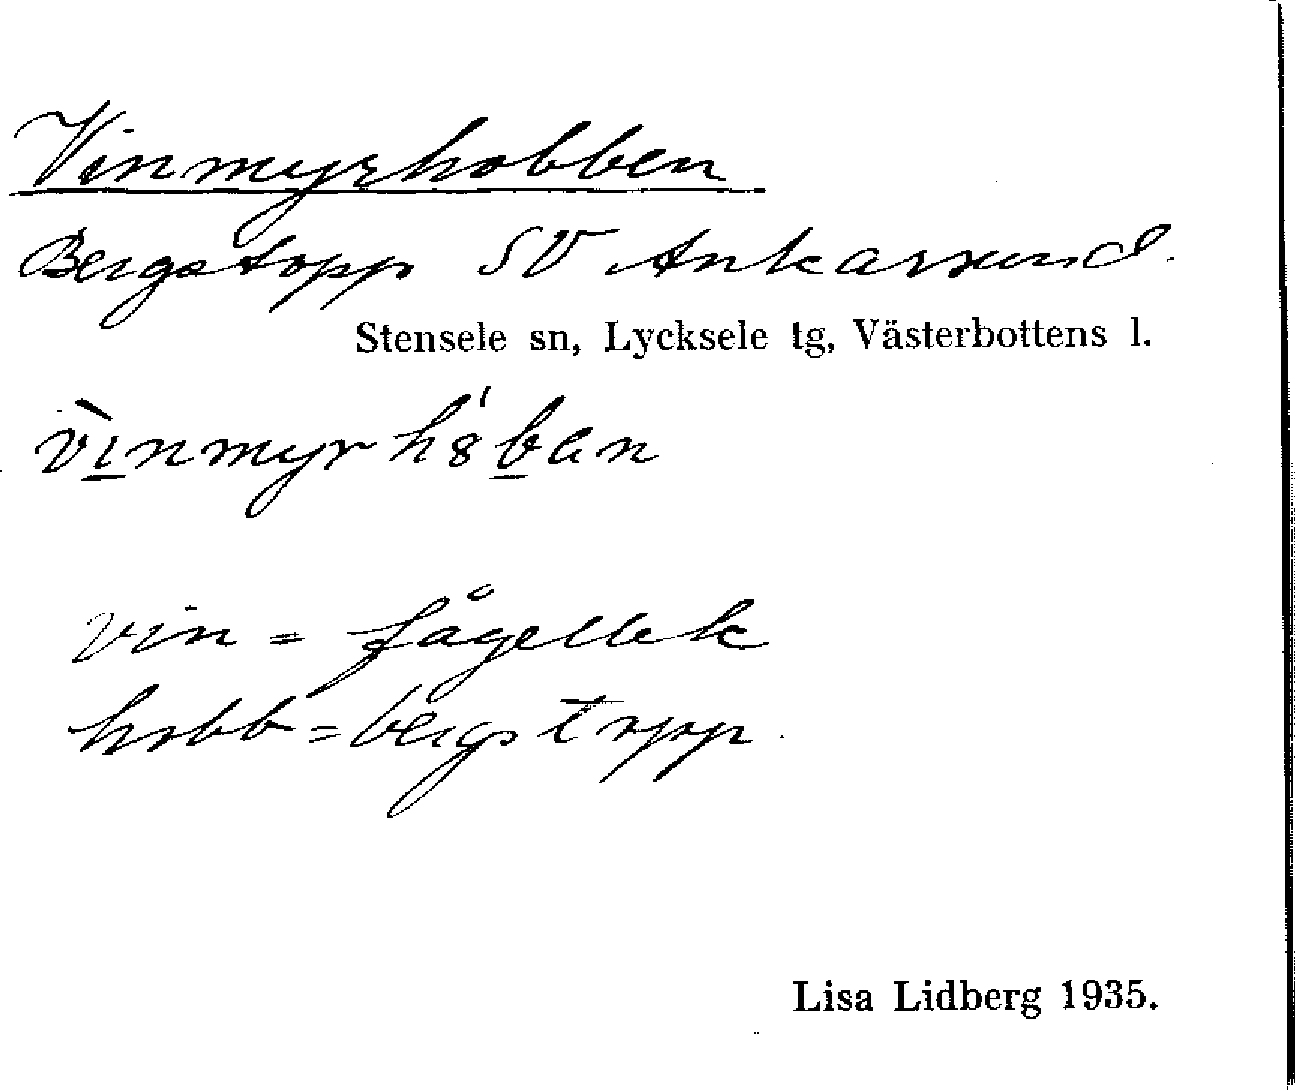 Vinmyrhobben
Bergstopp SV Ankarsund.
Stensele sn, Lycksele tg, Västerbottens l.
vin = fågellek
hobb = bergstopp.
Lisa Lidberg 1935.